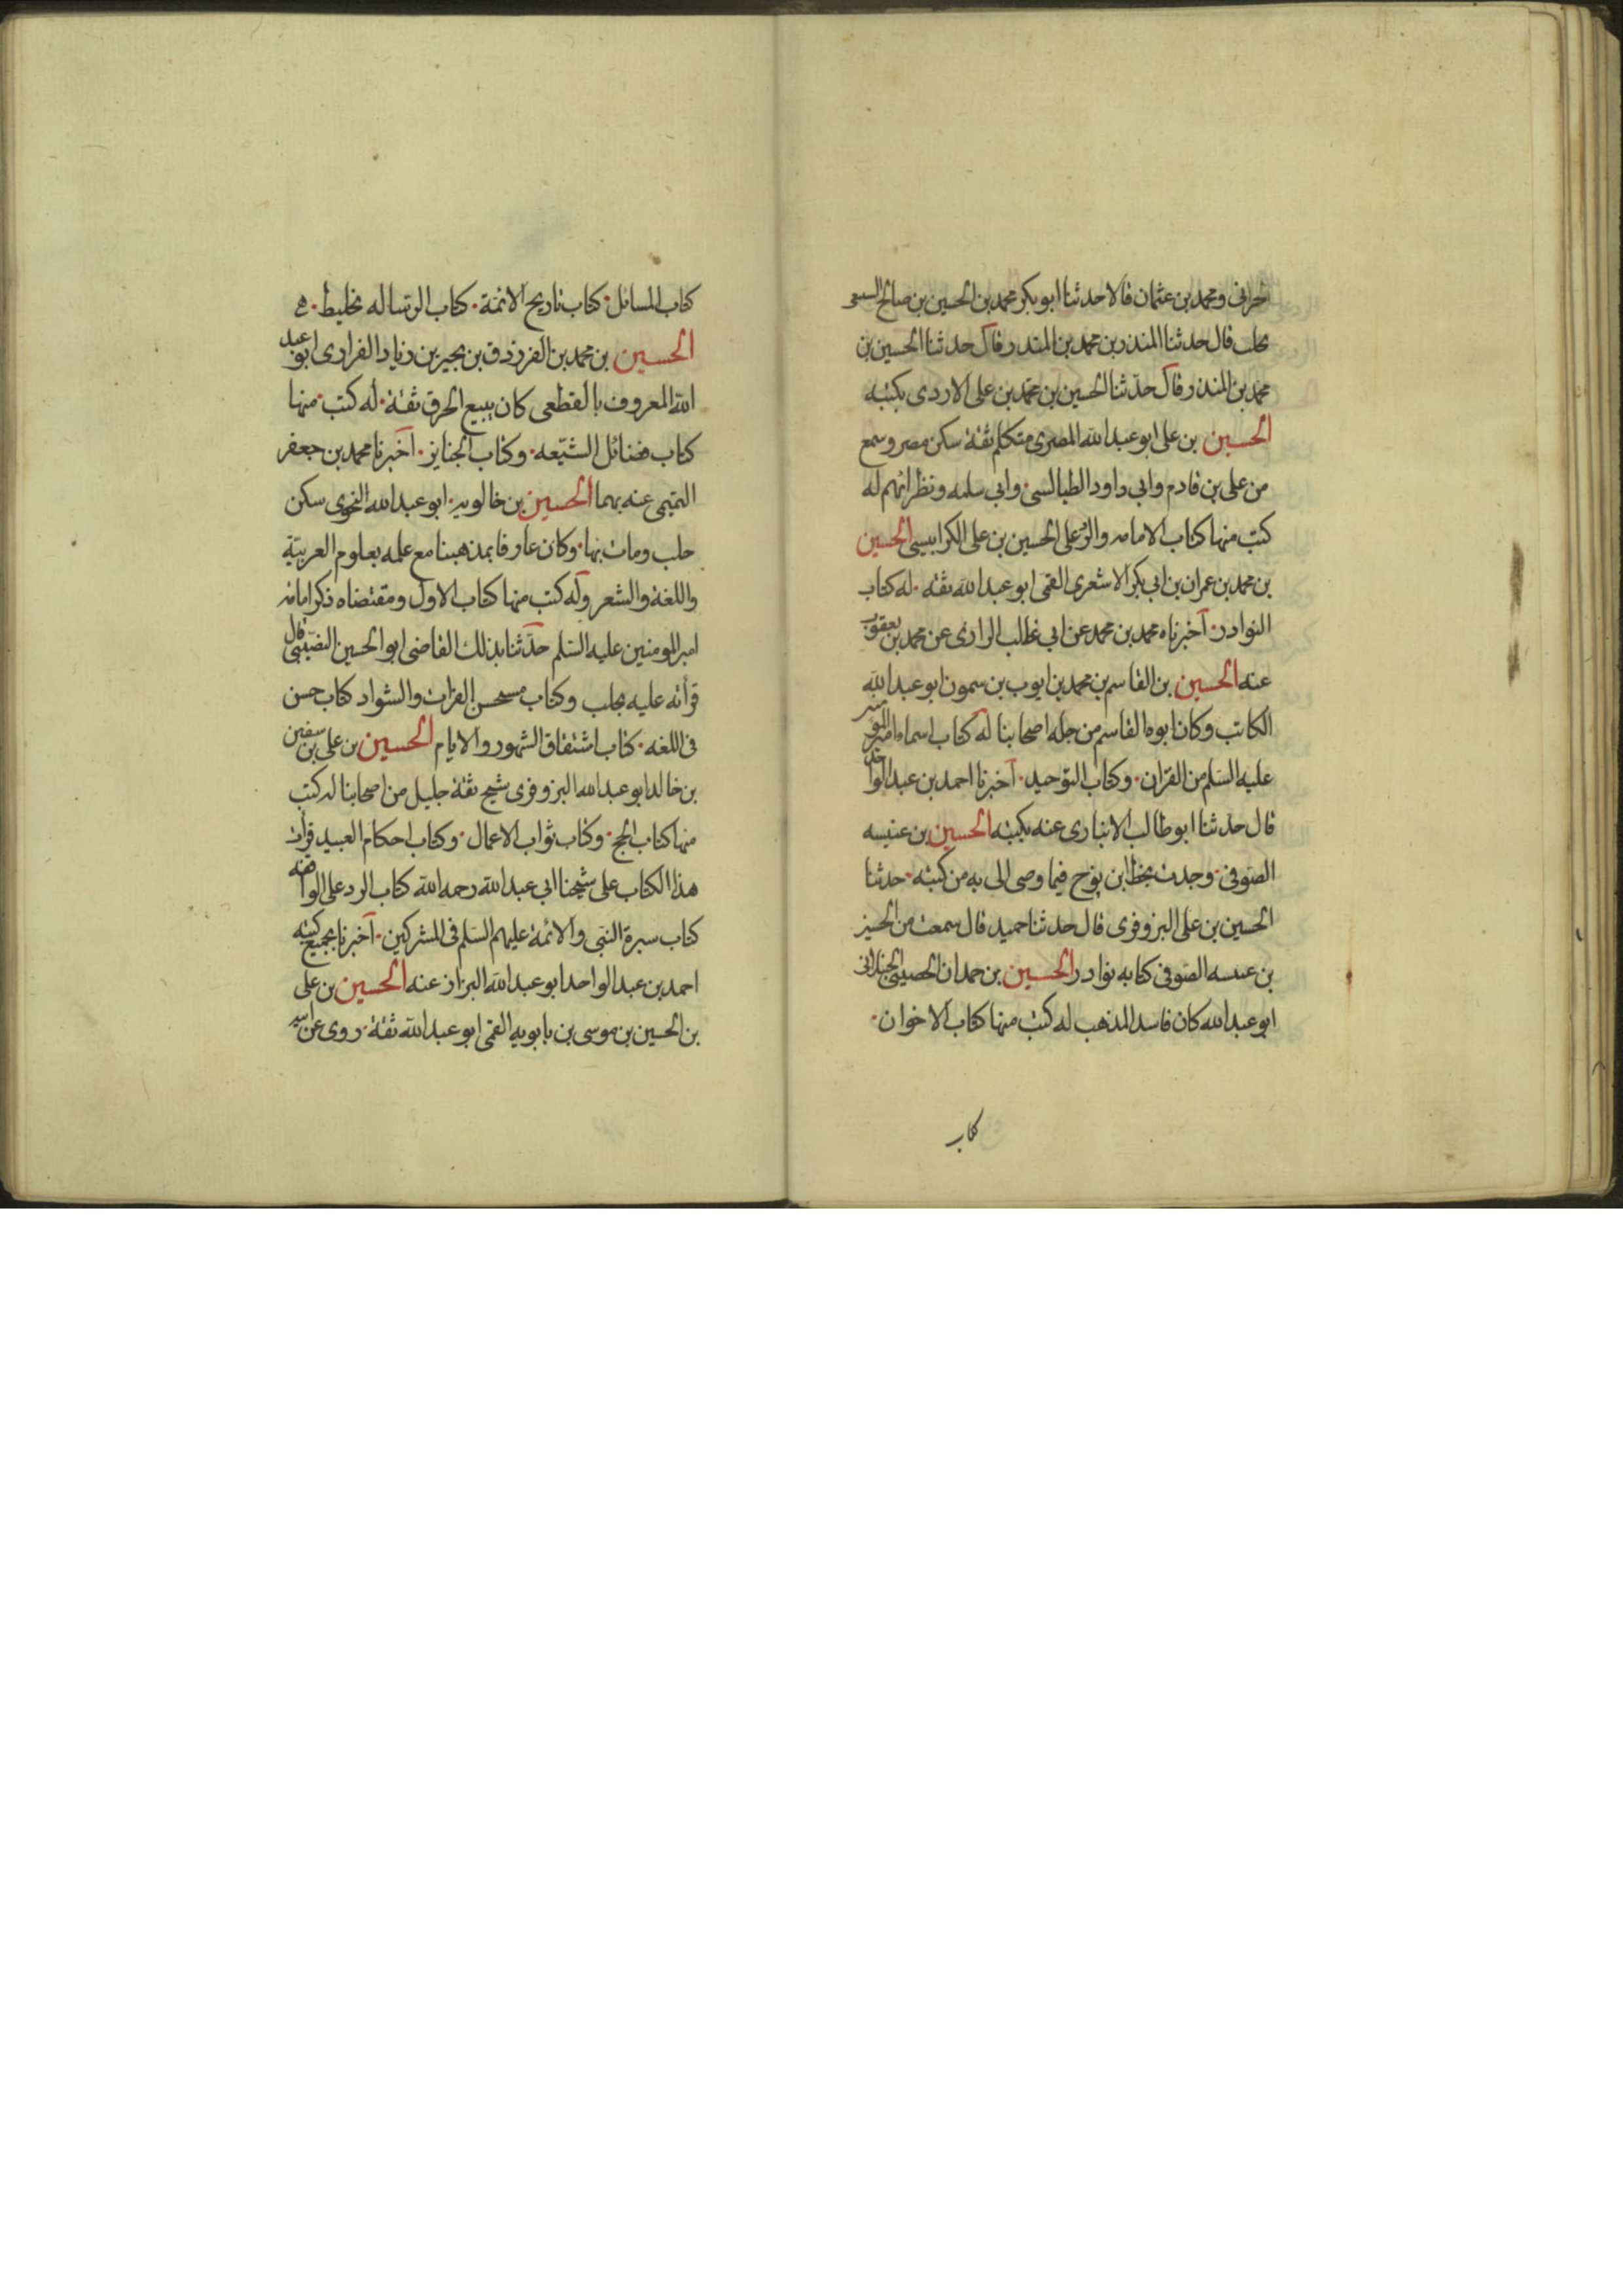 الحرانى ومحمد بن عثمان قالا حدثنا ابو بكر محمد بن الحسين بن صالح السبيعى
بحلب قال حدثنا المنذر بن محمد بن المنذر قال حدثنا الحسين بن
محمد بن المنذر قال حدثنا الحسين بن محمد بن على الازدى بكتبه
الحسين بن على ابو عبد الله المصرى متكلم ثقة سكن مصر وسمع
من على بن قادم وابى داود الطيالسى وابى سلمه ونظرائهم له
كتب منها كتاب الامامه والرد على الحسين بن على الكرابيسى الحسين
بن محمد بن عمران بن ابى بكر الاشعرى القمى ابو عبد الله ثقه له كتاب
النوادر اخبرناه محمد بن محمد عن ابى غالب الرازى عن محمد بن يعقوب
عنه الحسين بن القاسم بن محمد بن ايوب بن سمون ابو عبد الله
الكاتب وكان ابوه القاسم من جله اصحابنا له كتاب اسماء امير المومنين
عليه السلم من القران وكتاب التوحيد اخبرنا احمد بن عبد الواحد
قال حدثنا ابو طالب الانبارى عنه بكتبه الحسين بن عنبسه
الصوفى وجدت بخط ابن نوح فيما وصى الى به من كتبه حدثنا
الحسين بن على البزوفرى قال حدثنا حميد قال سمعت من الحسين
بن عنبسه الصوفى كتابه نوادر الحسين بن حمدان الحصينى الجنبلانى
ابو عبد الله كان فاسد المذهب له كتب منها كتاب الاخوان
كتاب
كتاب المسائل كتاب تاريخ الائمة كتاب الرساله تخليط
الحسين بن محمد بن الفرزدق بن بجير بن زياد الفزارى ابو عبد
الله المعروف بالقطعى كان يبيع الخرق ثقة له كتب منها
كتاب فضائل الشيعه وكتاب الجنايز اخبرنا محمد بن جعفر
التميمى عنه بهما الحسين بن خالويه ابو عبد الله النحوى سكن
حلب ومات بها وكان عارفا بمذهبنا مع علمه بعلوم العربية
واللغة والشعر وله كتب منها كتاب الاول ومقتضاه ذكر امامه
امير المومنين عليه السلم حدثنا بذلك القاضى ابو الحسين النصيبى قال
قراته عليه بحلب وكتاب مستحسن القرات والشواد كتاب حسن
فى اللغه كتاب اشتقاق الشهور والايام الحسين بن على بن سفين
بن خالد ابو عبد الله البزوفرى شيخ ثقة جليل من اصحابنا له كتب
منها كتاب الحج وكتاب ثواب الاعمال وكتاب احكام العبيد قرات
هذا الكتاب على شيخنا ابى عبد الله رحمه الله كتاب الرد على الواقفه
كتاب سيرة النبى والائمة عليهم السلم فى المشركين اخبرنا بجميع كتبه
احمد بن عبد الواحد ابو عبد الله البزاز عنه الحسين بن على
بن الحسين بن موسى بن بابويه القمى ابو عبد الله ثقة روى عن ابيه